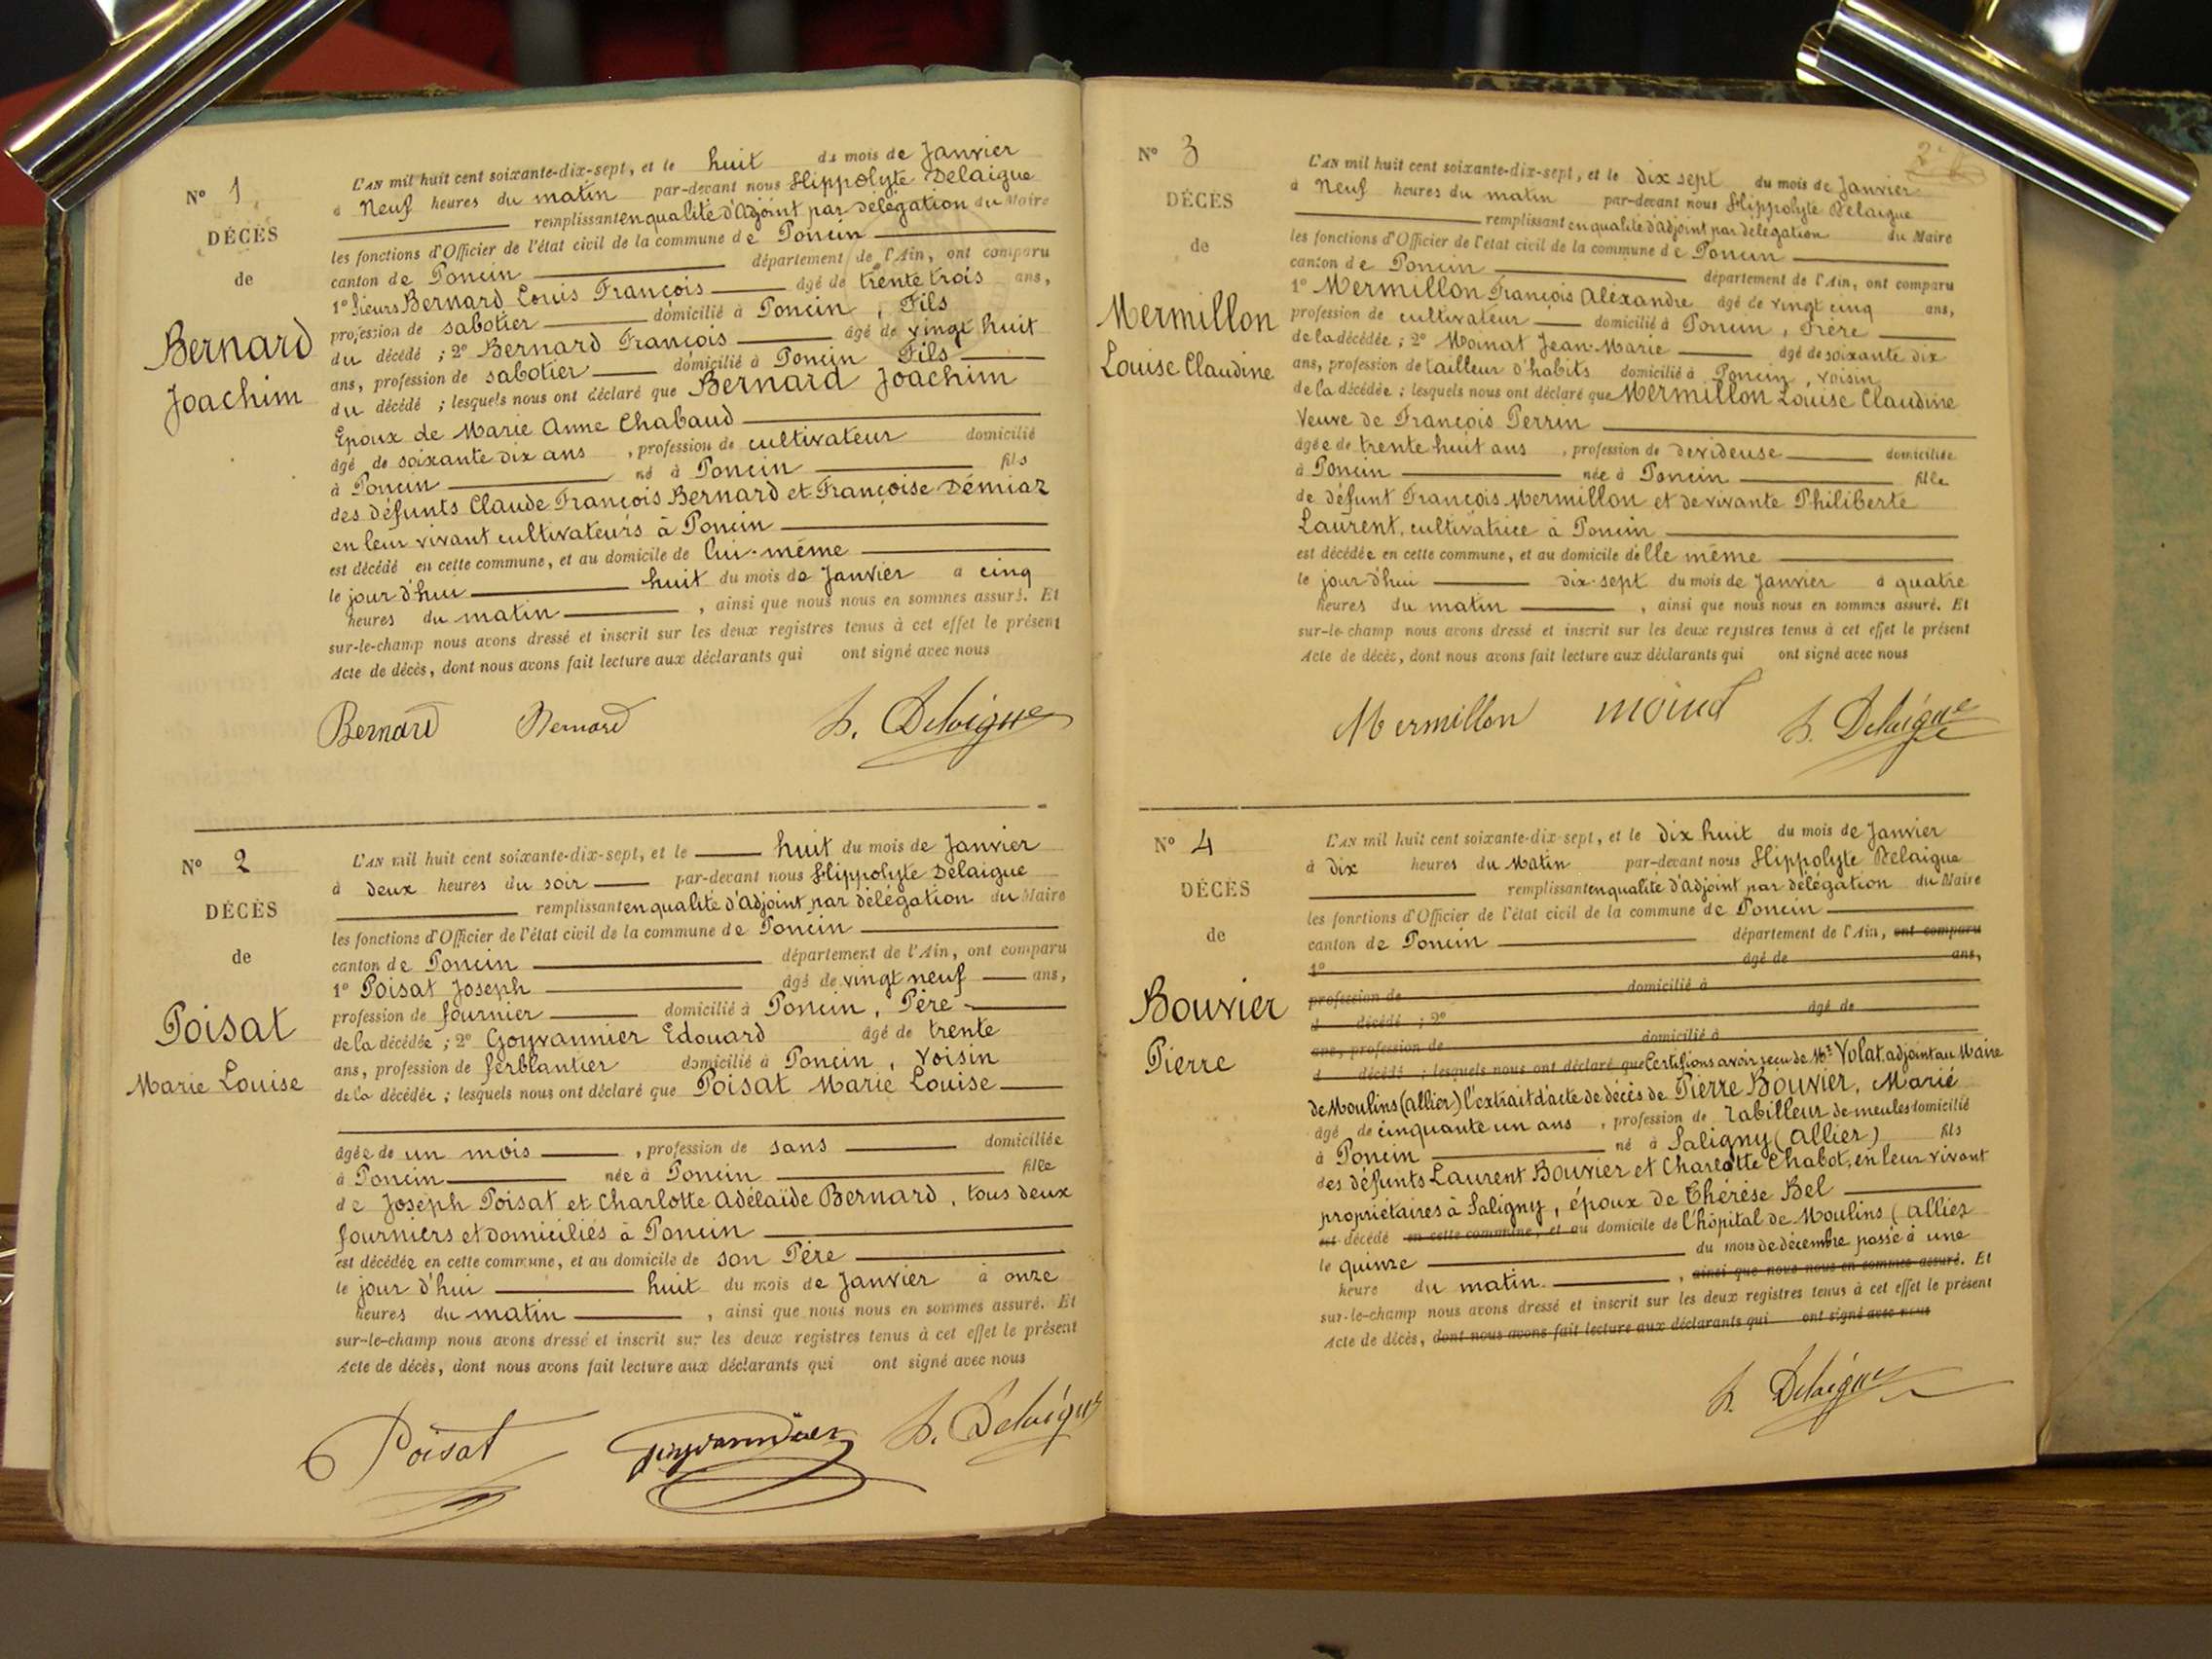 N° 1
DÉCÈS
de
Bernard
Joachim
L'AN mil huit cent soixante-dix-sept, et le huit du mois de Janvier
à Neuf heures du matin par-devant nous Hippolyte Delaigue
remplissant en qualité d'Adjoint par délégation du Maire
les fonctions d'Officier de l'état civil de la commune de Poncin
canton de Poncin département de l'Ain, ont comparu
1° Sieurs Bernard Louis François âgé de trente trois ans,
profession de sabotier domicilié à Poncin, Fils
du décédé ; 2° Bernard François âgé de vingt huit
ans, profession de sabotier domicilié à Poncin Fils
du décédé ; lesquels nous ont déclaré que Bernard Joachim
Epoux de Marie Anne Chabaud
âgé de soixante dix ans, profession de cultivateur domicilié
à Poncin né à Poncin fils
des défunts Claude François Bernard et Françoise Démiaz
en leur vivant cultivateurs à Poncin
est décédé en cette commune, et au domicile de lui-même
le jour d'hui huit du mois de Janvier à cinq
heures du matin, ainsi que nous nous en sommes assuré. Et
sur-le-champ nous avons dressé et inscrit sur les deux registres tenus à cet effet le présent
Acte de décès, dont nous avons fait lecture aux déclarants qui ont signé avec nous
Bernard Bernard h. Delaigue
N° 2
DÉCÈS
de
Poisat
Marie Louise
L'AN mil huit cent soixante-dix-sept, et le huit du mois de Janvier
à deux heures du soir par-devant nous Hippolyte Delaigue
remplissant en qualité d'Adjoint par délégation du Maire
les fonctions d'Officier de l'état civil de la commune de Poncin
canton de Poncin département de l'Ain, ont comparu
1° Poisat Joseph âgé de vingt neuf ans,
profession de fournier domicilié à Poncin, Père
de la décédée ; 2° Goyvannier Edouard âgé de trente
ans, profession de ferblantier domicilié à Poncin, Voisin
de la décédée ; lesquels nous ont déclaré que Poisat Marie Louise
âgée de un mois, profession de sans domiciliée
à Poncin née à Poncin fille
de Joseph Poisat et Charlotte Adélaïde Bernard, tous deux
fourniers et domiciliés à Poncin
est décédée en cette commune, et au domicile de son Père
le jour d'hui huit du mois de Janvier à onze
heures du matin, ainsi que nous nous en sommes assuré. Et
sur-le-champ nous avons dressé et inscrit sur les deux registres tenus à cet effet le présent
Acte de décès, dont nous avons fait lecture aux déclarants qui ont signé avec nous
Poisat Goyvannier h. Delaigue
N° 3
DÉCÈS
de
Mermillon
Louise Claudine
L'AN mil huit cent soixante-dix-sept, et le dix sept du mois de Janvier
à Neuf heures du matin par-devant nous Hippolyte Delaigue
remplissant en qualité d'adjoint par délégation du Maire
les fonctions d'Officier de l'état civil de la commune de Poncin
canton de Poncin département de l'Ain, ont comparu
1° Mermillon François Alexandre âgé de vingt cinq ans,
profession de cultivateur domicilié à Poncin, Frère
de la décédée ; 2° Moinat Jean-Marie âgé de soixante dix
ans, profession de tailleur d'habits domicilié à Poncin, voisin
de la décédée ; lesquels nous ont déclaré que Mermillon Louise Claudine
Veuve de François Perrin
âgée de trente huit ans, profession de devideuse domiciliée
à Poncin née à Poncin fille
de défunt François Mermillon et de vivante Philiberte
Laurent, cultivatrice à Poncin
est décédée en cette commune, et au domicile d'elle même
le jour d'hui dix-sept du mois de Janvier à quatre
heures du matin, ainsi que nous nous en sommes assuré. Et
sur-le-champ nous avons dressé et inscrit sur les deux registres tenus à cet effet le présent
Acte de décès, dont nous avons fait lecture aux déclarants qui ont signé avec nous
Mermillon h. Delaigue
N° 4
DÉCÈS
de
Bouvier
Pierre
L'AN mil huit cent soixante-dix-sept, et le dix huit du mois de Janvier
à dix heures du matin par-devant nous Hippolyte Delaigue
remplissant en qualité d'adjoint par délégation du Maire
les fonctions d'Officier de l'état civil de la commune de Poncin
canton de Poncin département de l'Ain, ont comparu
1° âgé de ans,
profession de domicilié à
d décédé ; 2° âgé de
ans, profession de domicilié à
d décédé ; lesquels nous ont déclaré que Certifions avoir reçu de Mr Volat, adjoint au Maire
de Moulins (Allier) l'extrait d'acte de décès de Pierre Bouvier, Marié
âgé de cinquante un ans, profession de rabilleur de meules domicilié
à Poncin né à Saligny (Allier) fils
des défunts Laurent Bouvier et Charlotte Chabot, en leur vivant
propriétaires à Saligny, époux de Thérèse Bel
est décédé en cette commune, et au domicile de l'hôpital de Moulins (Allier
le quinze du mois de décembre passé à une
heure du matin, ainsi que nous nous en sommes assuré. Et
sur-le-champ nous avons dressé et inscrit sur les deux registres tenus à cet effet le présent
Acte de décès, dont nous avons fait lecture aux déclarants qui ont signé avec nous
h. Delaigue